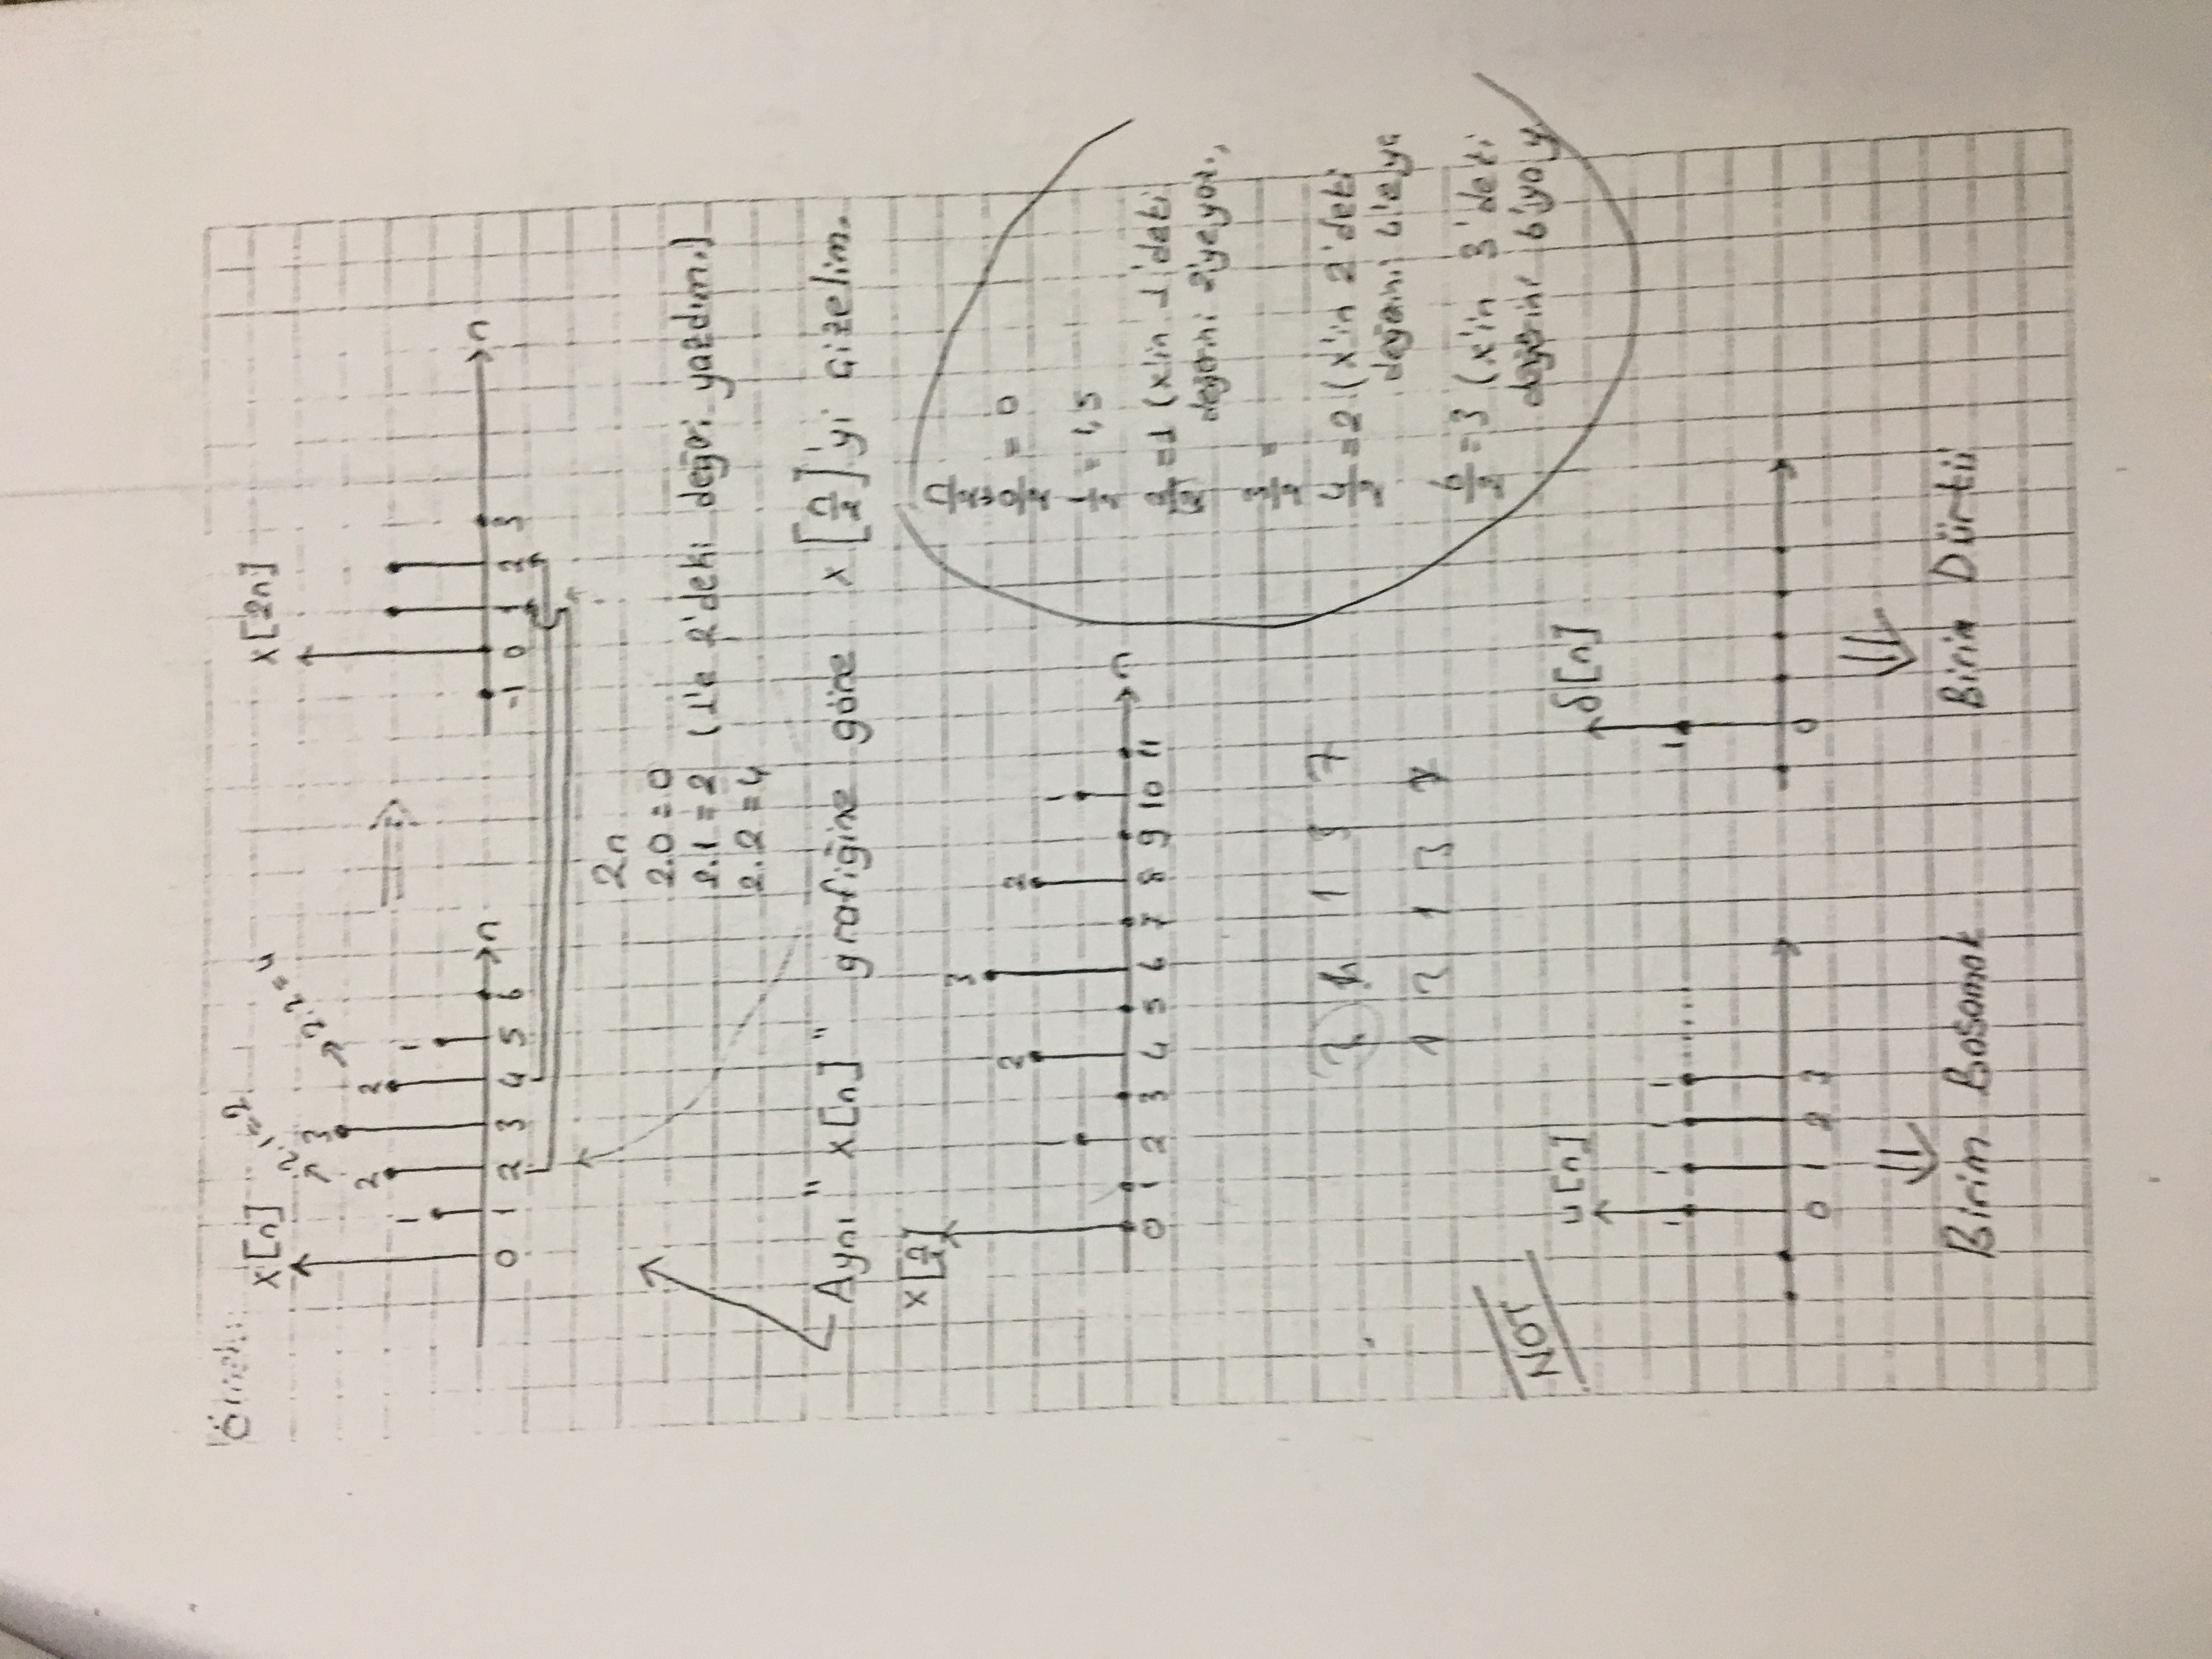 Örnek:
x[n]
2.1=2
2.2=4
1 2 3 2 1
0 1 2 3 4 5 6 n
x[2n]
-1 0 1 2 3 n
2n
2.0=0
2.1=2 (1'e 2'deki değeri yazdım.)
2.2=4
Aynı "x[n]" grafiğine göre x[n/2]'yi çizelim.
x[n/2]
1 2 3 2 1
0 1 2 3 4 5 6 7 8 9 10 11 n
n/2
0/2 = 0
1/2 = 1,5
2/2 = 1 (x'in 1'deki
değerini 2'ye yaz.,
3/2 =
4/2 = 2 (x'in 2'deki
değerini 4'e ya
6/2 = 3 (x'in 3'deki
değerini 6'ya y
1 3 7
1 3 7
NOT
u[n]
1 1 1 1 .....
0 1 2 3
δ[n]
1
0
Birim Basamak
Birim Dürtü